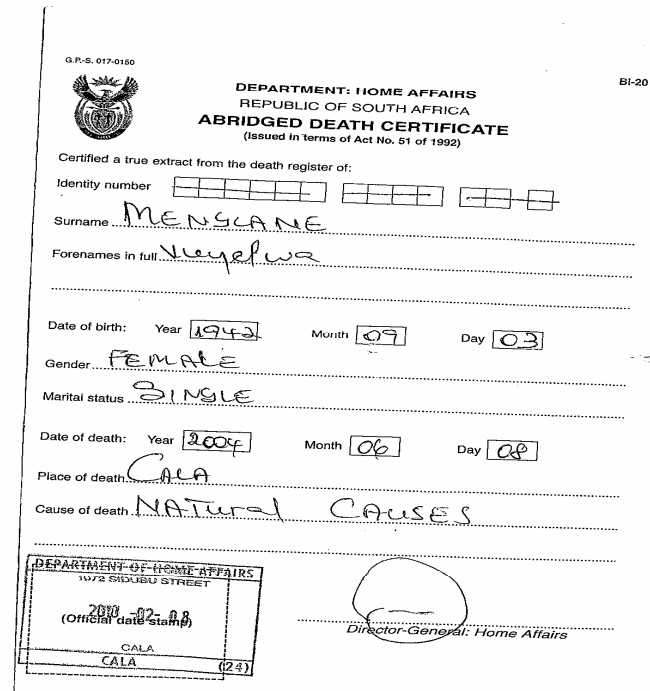 G.P.-S. 017-0150
BI-20
DEPARTMENT: HOME AFFAIRS
REPUBLIC OF SOUTH AFRICA
ABRIDGED DEATH CERTIFICATE
(Issued in terms of Act No. 51 of 1992)
Certified a true extract from the death register of:
Identity number
Surname MENGCANE
Forenames in full Vuyelwa
Date of birth: Year 1942 Month 09 Day 03
Gender FEMALE
Marital status SINGLE
Date of death: Year 2004 Month 06 Day 08
Place of death CALA
Cause of death NATural CAUSES
DEPARTMENT OF HOME AFFAIRS
1072 SIDUBU STREET
2010 -02- 08
(Official date stamp)
CALA
CALA (24)
Director-General: Home Affairs